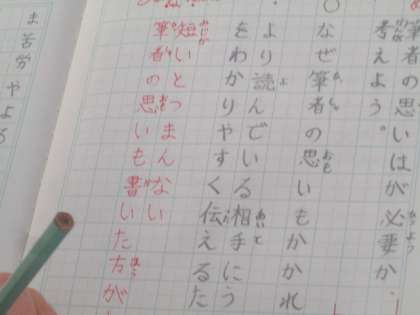 筆者のいはが必要か
考えよう。
なぜ筆者の思いもかかれ
より読んでいる相手にう
をわかりやすく伝えるた
短いとつまんない
筆者の思いも書いた方が
ま苦労やよ